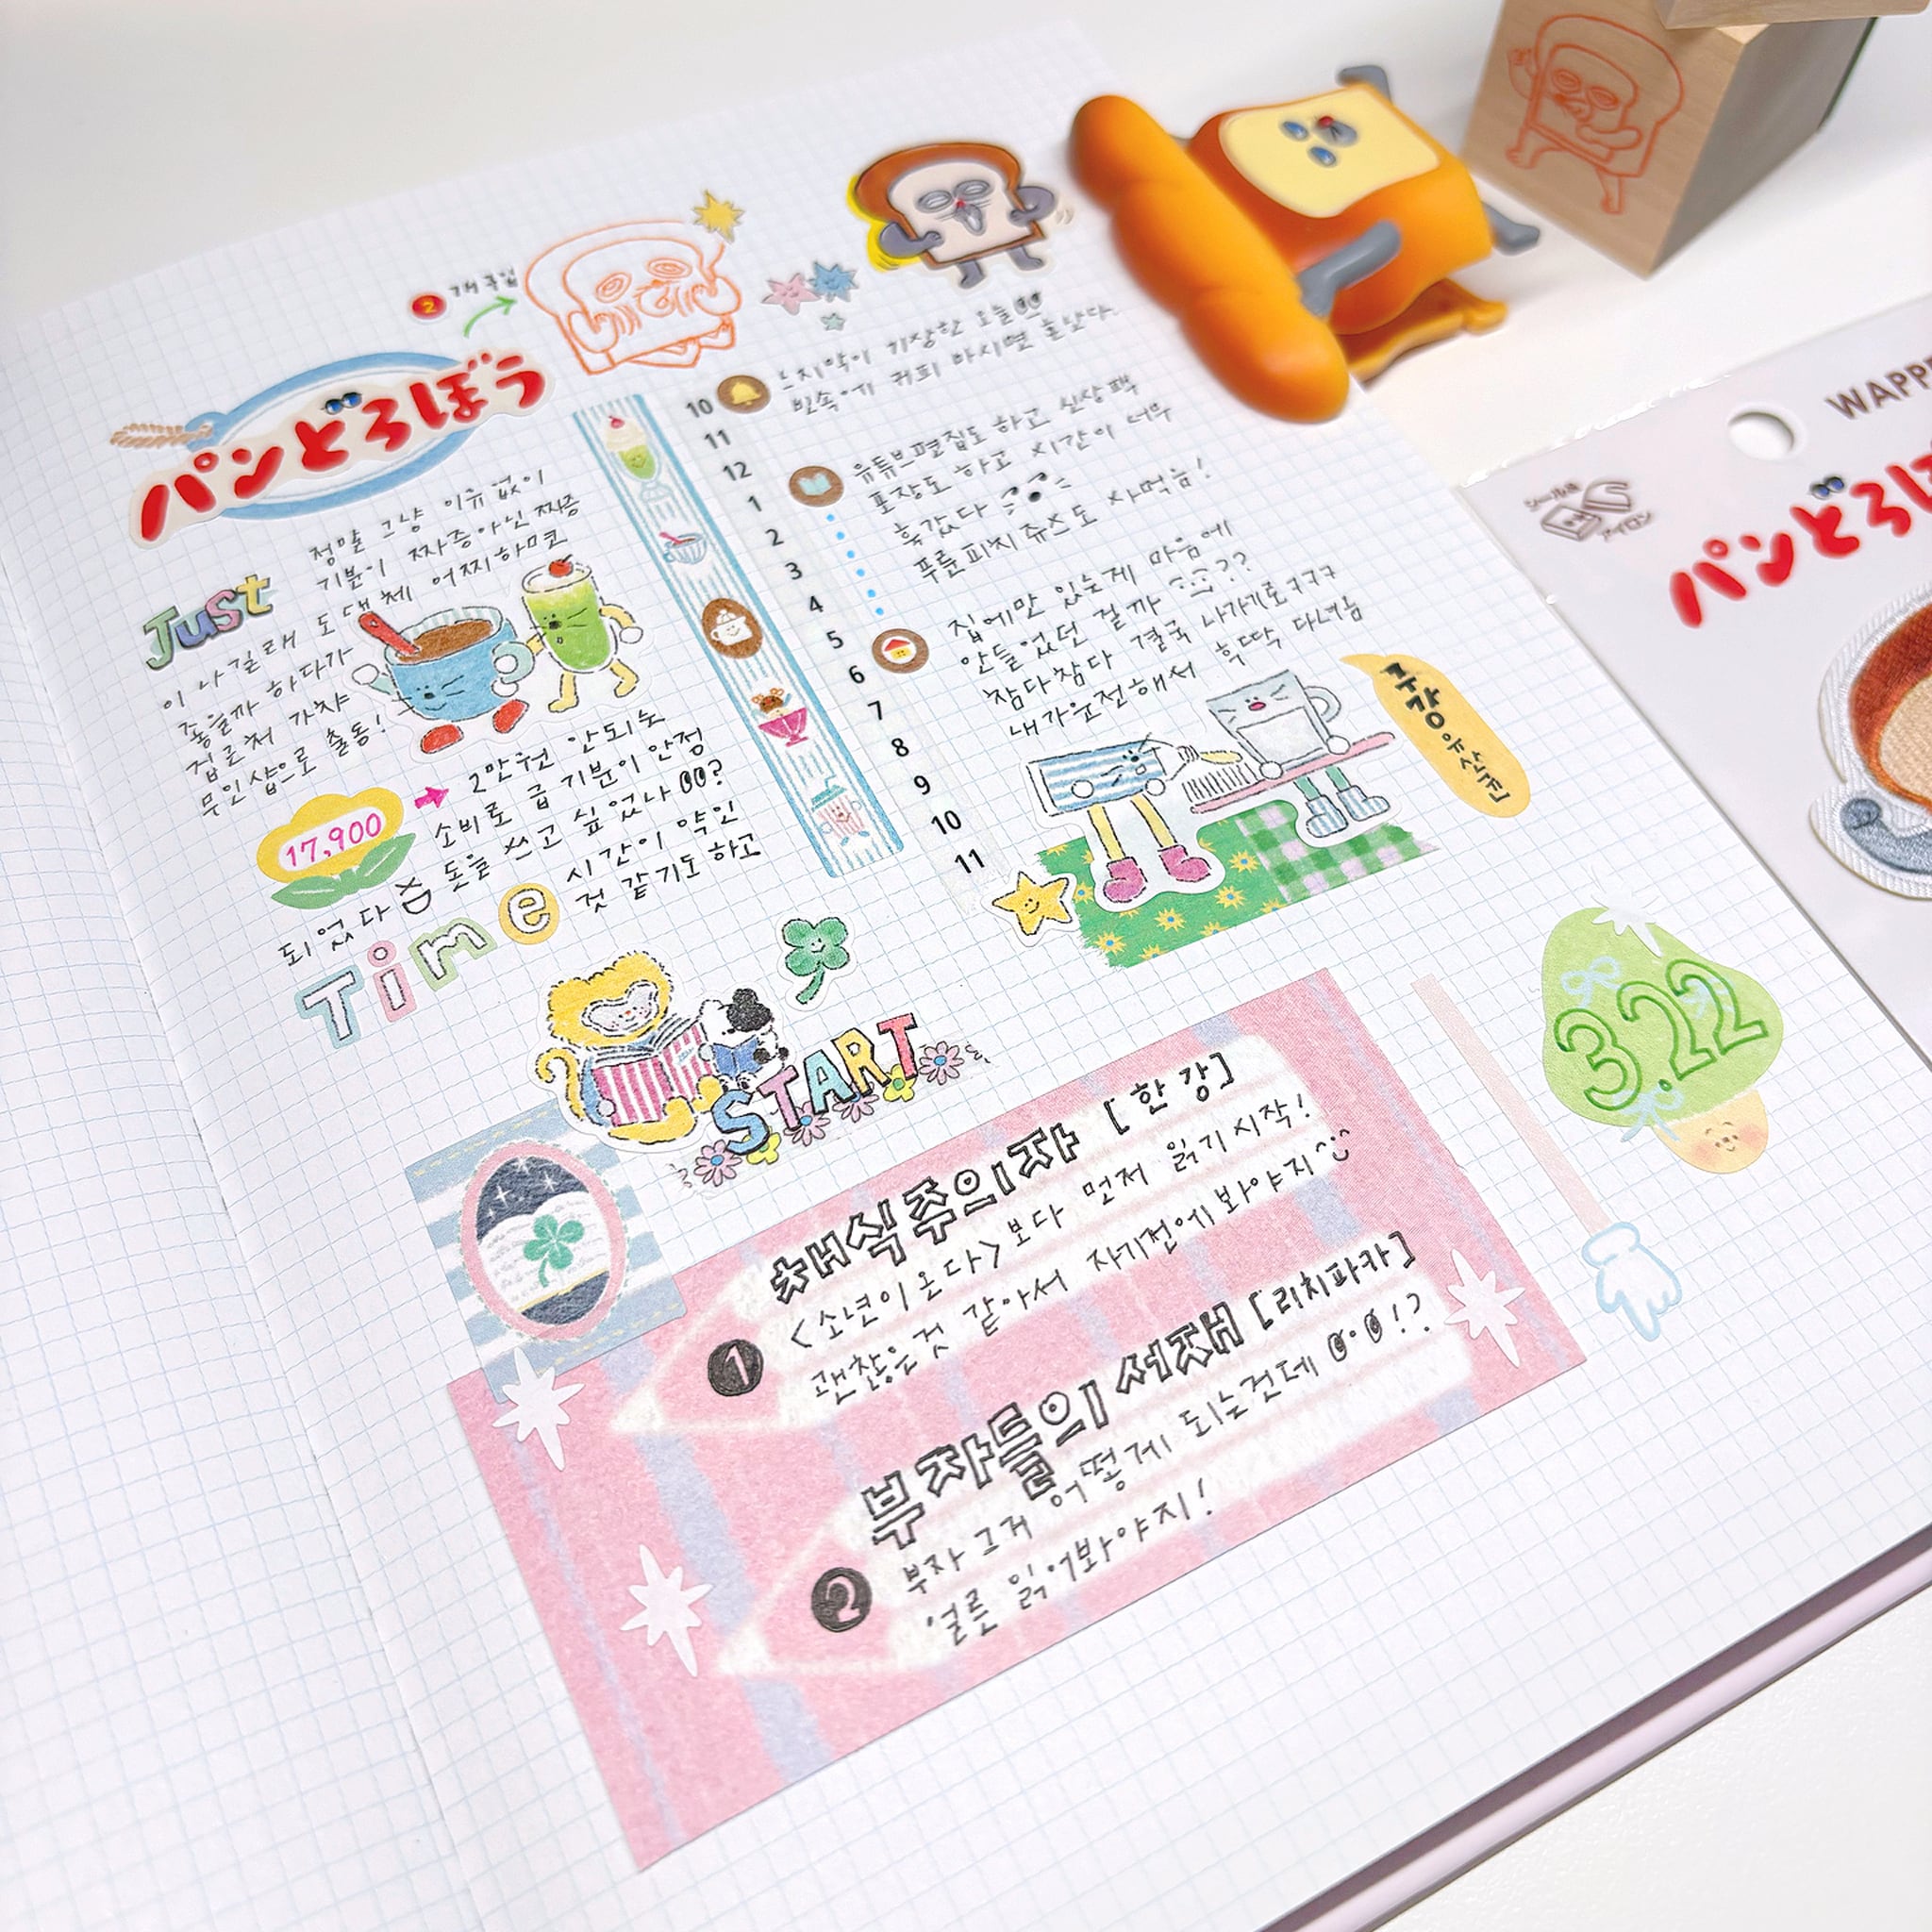 2 개 구입
パンどろぼう
Just
정말 그냥 이유 없이
기분이 짜증아닌 짜증
이 나길래 도대체 어찌하면
좋을까 하다가
집근처 가챠
무인샵으로 출동!
17,900
2만원 안되는
소비로 급 기분이 안정
되었다 XD 돈을 쓰고 싶었나 00?
Time
시간이 약인
것 같기도 하고
10
11
12
1
2
3
4
5
6
7
8
9
10
11
느지막이 기상한 오늘
빈속에 커피 마시면 혼난다.
유튜브편집도 하고 신상팩
포장도 하고 시간이 너무
훅갔다
푸룬피치 쥬스도 사먹음!
집에만 있는게 마음에
안들었던 걸까 ??
참다참다 결국 나가기로ㅋㅋㅋ
내가운전해서 후딱 다녀옴
START
3.22
채식주의자 [한강]
1
<소년이 온다> 보다 먼저 읽기 시작!
괜찮은것 같아서 자기전에 봐야지^^
부자들의 서재 [리치파카]
2
부자 그거 어떻게 되는건데 0.0!?
얼른 읽어봐야지!
WAPPE
シール&
アイロン
パンどろぼ